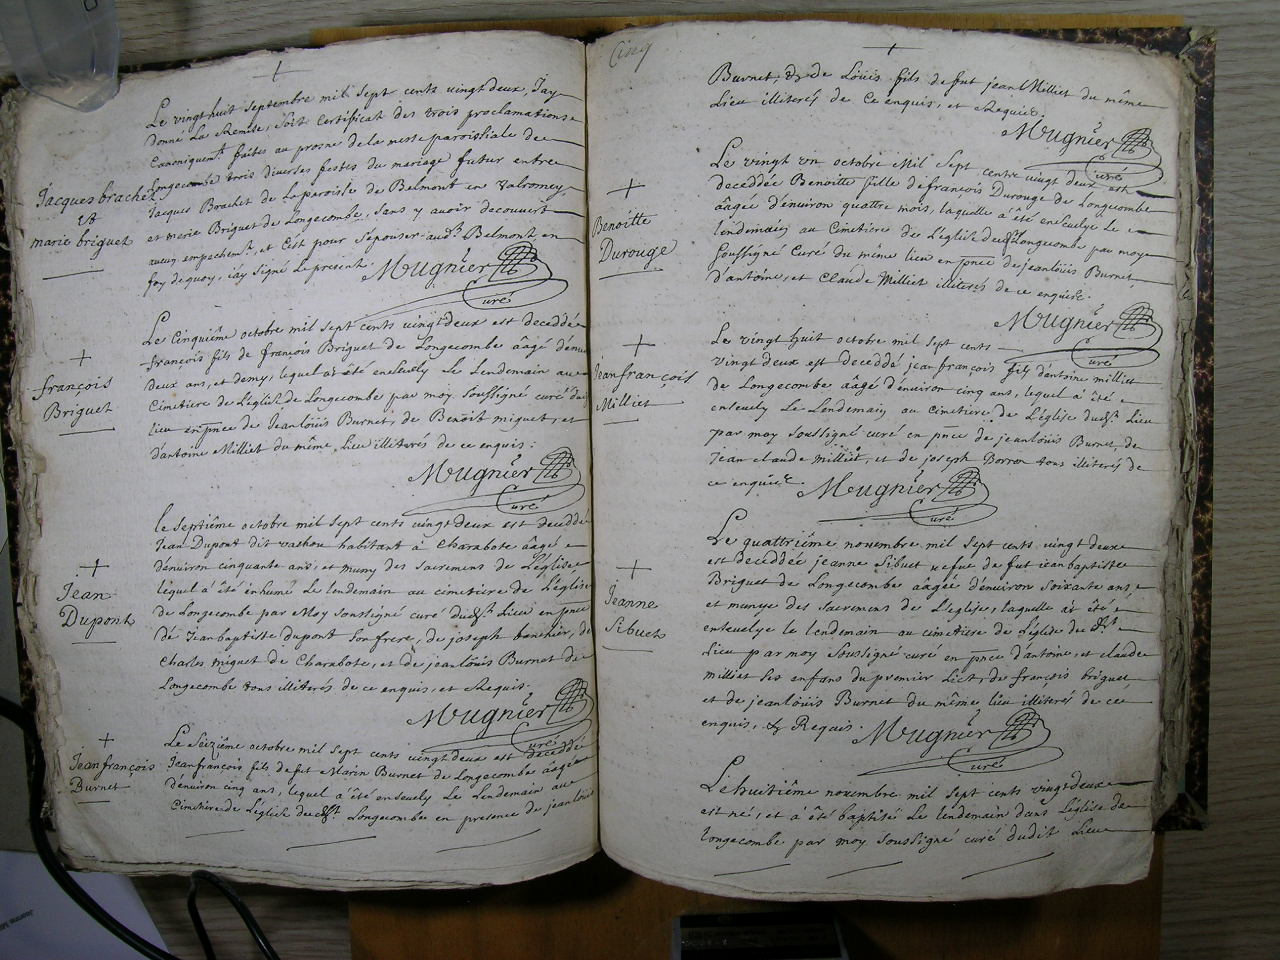 Le vingt huit septembre mil sept cents vingt deux, J'ay
donné La Remise, soit Certificat des trois proclamations
Canoniquemt faites au prosne de la messe paroissiale de
Longecombe trois diverses festes du mariage futur entre
Jacques brachet
et
marie briguet
Jacques Brachet de La paroisse de Belmont en Valromey,
et merie Briguet de Longecombe, sans y avoir decouvert
aucun empechemt, et C'est pour s'épouser aud.t Belmont en
foy dequoy, iay signé Le present. Mugnier
Curé
Le Cinquiême octobre mil sept cents vingt deux est deceddé
françois fils de françois Briguet de Longecombe âagé d'énui
françois
Briguet
deux ans, et demy, lequel a été enseuely Le Lendemain au
Cimetiere de L'église de Longecombe par moy soussigné curé dud
lieu en pnce de Jeanloüis Burnet, de Benoit miguet, et
d'antoine Milliet du même Lieu illiterés de ce enquis.
Mugnier
Curé
le septiême octobre mil sept cents vingt deux est deceddé
Jean Dupont dit vachou habitant à Charabote âagé
Jean
Dupont
d'énuiron cinquante ans, et muny des sacremens de L'église
lequel a été enhumé Le lendemain au cimetiere de L'église
de Longecombe par Moy soussigné curé dudt Lieu en pnce
de Jeanbaptiste dupont son frere, de joseph
Charles miguet de Charabote, et de jeanloüis Burnet de
Longecombe tous illiterés de ce enquis, et Requis.
Mugnier
Curé
Le Seiziême octobre mil sept cents vingt deux est deceddé
Jean françois
Burnet
Jeanfrançois fils defut Marin Burnet de Longecombe âagé
d'énuiron cinq ans, lequel a été enseuely Le Lendemain au
Cimetiere de L'église dudt Longecombe en presence de jeanloüis
Cinq
Burnet, & de Loüis fils defut jean Milliet du même
Lieu illiterés de Ce enquis, et Requis.
Mugnier
Curé
Le vingt un octobre Mil sept cents vingt deux est
deceddée Benoitte fille de françois Durouge de Longecombe
Benoitte
Durouge
âagée d'énuiron quattre mois, laquelle a été enseuelye Le
lendemain au Cimetiere de L'église dudt Longecombe par moy
soussigné Curé du même lieu en pnce de jeanloüis Burnet,
d'antoine, et Claude Milliet illiterés de ce enquis.
Mugnier
Curé
Le vingt huit octobre mil sept cents
Jean françois
Milliet
vingt deux est deceddé jeanfrançois fils d'antoine milliet
de Longecombe âagé d'énuiron cinq ans, lequel a été
enseuely Le Lendemain au cimetiere de L'église dudt Lieu
par moy soussigné curé en pnce de jeanloüis Burnet, de
Jean claude milliet, et de joseph Borron tous illiterés de
ce enquis. Mugnier
Curé
Le quattriême novembre mil sept cents vingt deux
est deceddée jeanne Sibuet vefue de fut jeanbaptiste
Jeanne
Sibuet
Briguet de Longecombe âagée d'énuiron soixante ans,
et munye des sacremens de L'église, laquelle a été
enseuelye le lendemain au cimetiere de L'église dudt
Lieu par moy soussigné curé en pnce d'antoine, et claude
milliet ses enfans du premier Lict, de françois briguet
et de jeanloüis Burnet du même lieu illiterés de ce
enquis, & Requis. Mugnier
Curé
Le huitiême novembre mil sept cents vingt deux
est né, et a été baptisé Le lendemain dans L'église de
longecombe par moy soussigné curé dudit Lieu